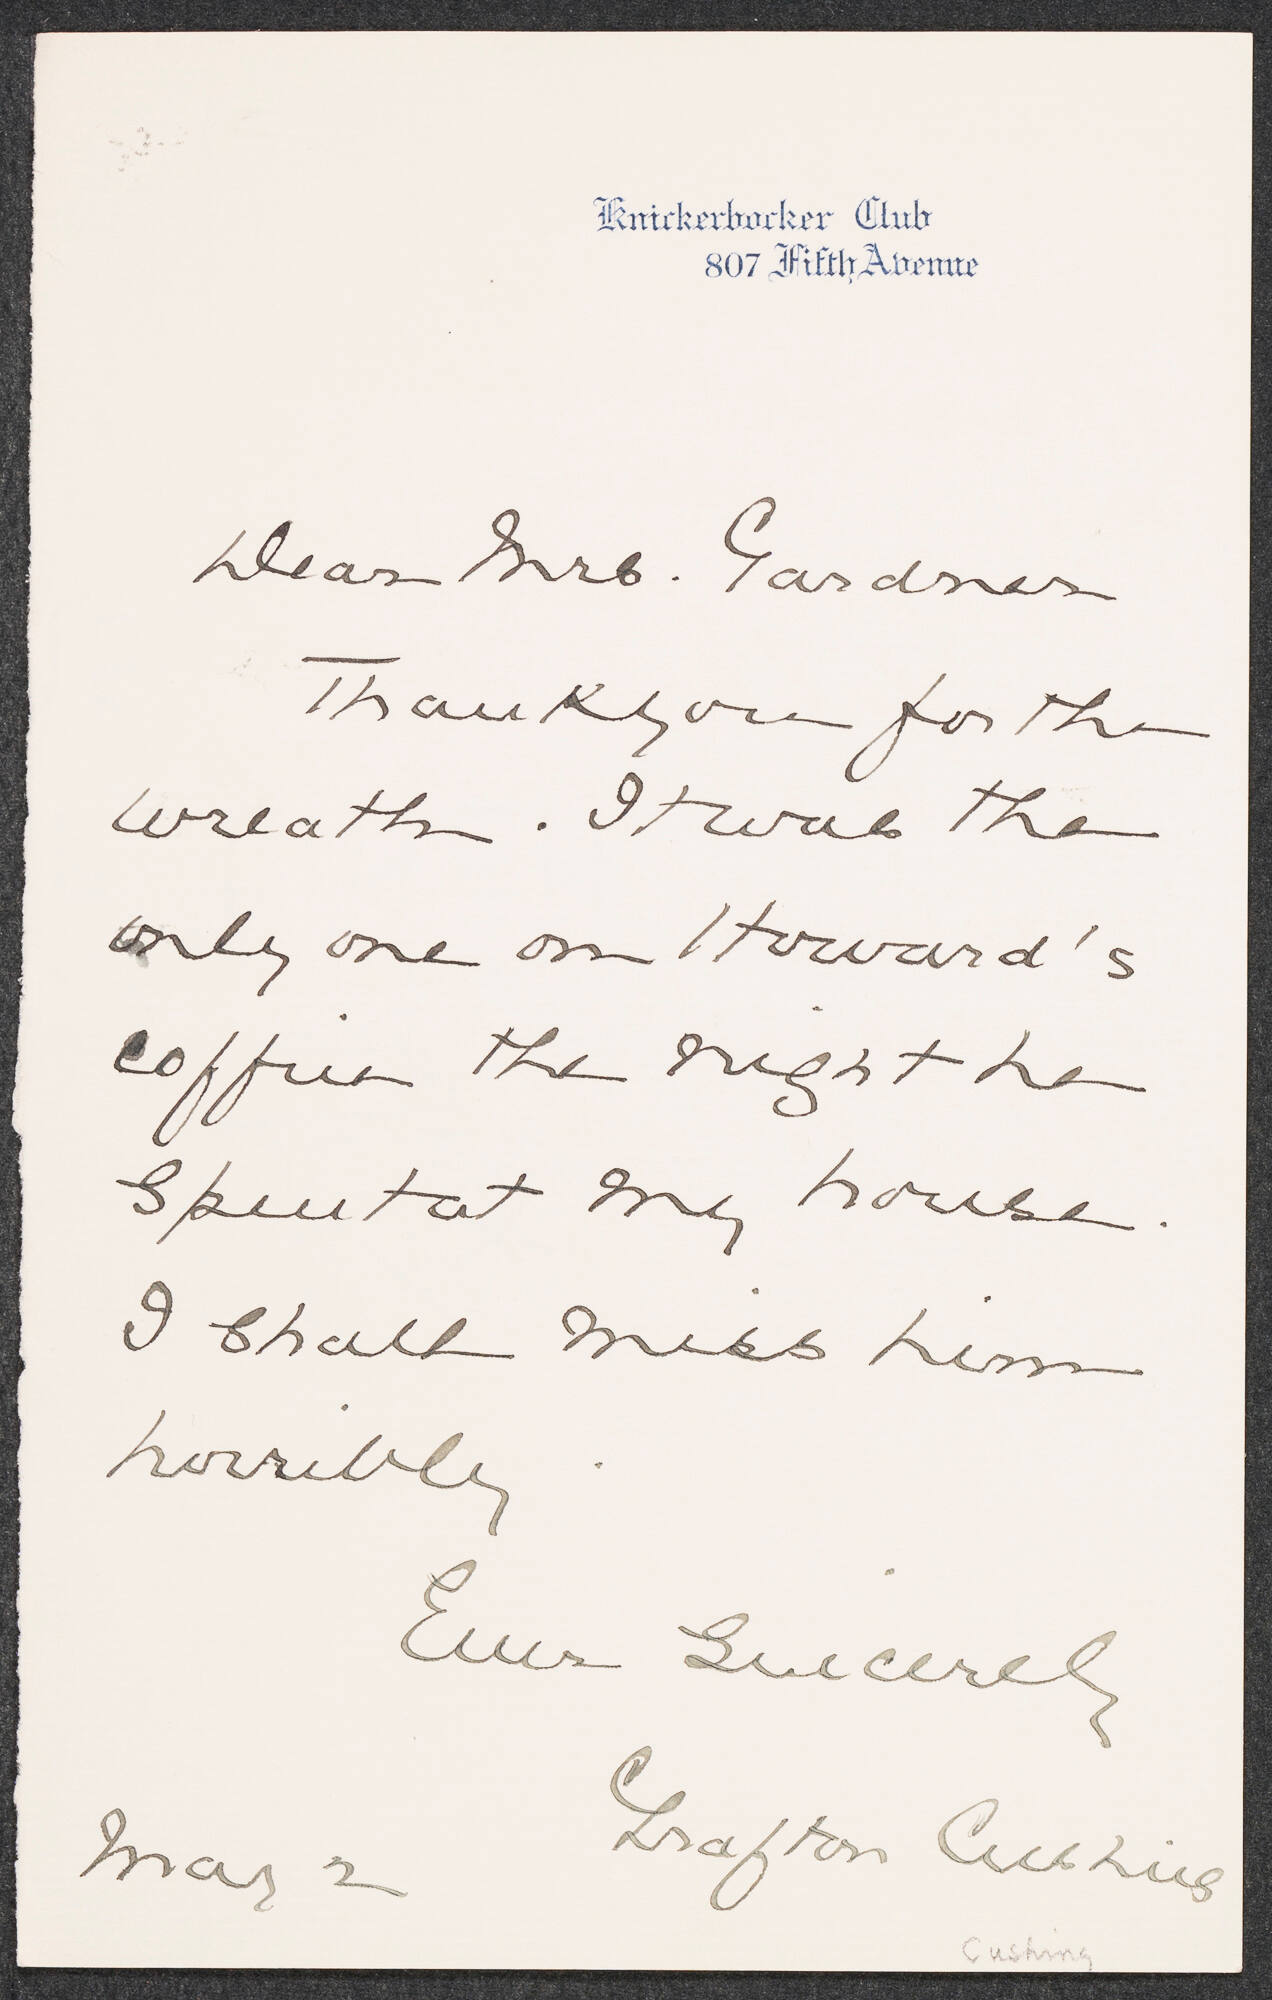 Knickerbocker Club
807 Fifth Avenue
Dear Mrs. Gardner
Thank you for the
wreath. It was the
only one on Howard's
coffin the night he
spent at my house.
I shall miss him
horribly.
Ever Sincerely
Grafton Cushing
May 2
Cushing